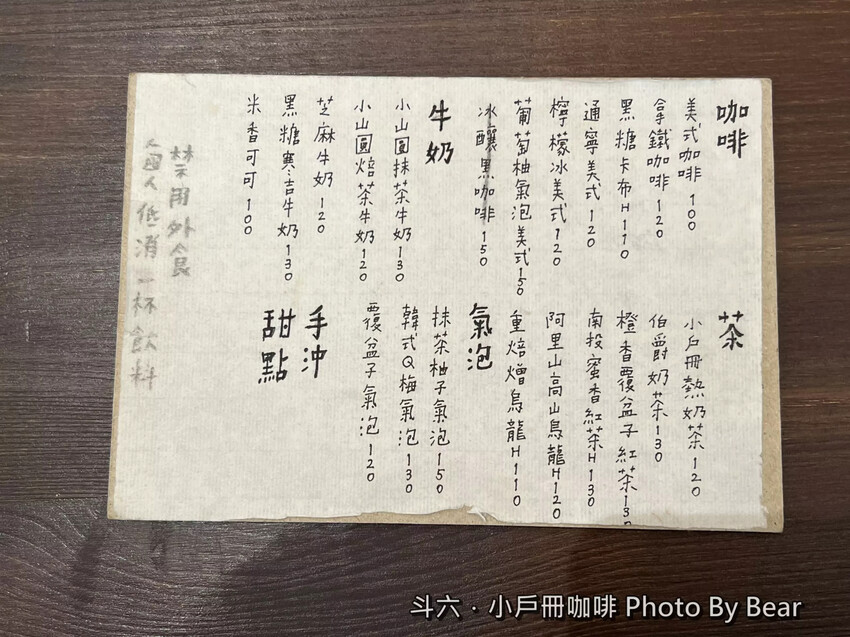 咖啡
美式咖啡 100
拿鐵咖啡 120
黑糖卡布H110
通寧美式 120
檸檬冰美式 120
葡萄柚氣泡美式 150
冰釀黑咖啡 150
牛奶
小山園抹茶牛奶 130
小山園焙茶牛奶 120
芝麻牛奶 120
黑糖寒吉牛奶 130
米香可可 100
茶
小戶冊熱奶茶 120
伯爵奶茶 130
橙香覆盆子紅茶 130
南投蜜香紅茶H130
阿里山高山烏龍H120
重焙煙烏龍H110
氣泡
抹茶柚子氣泡 150
韓式Q梅氣泡 130
覆盆子氣泡 120
手沖
甜點
禁用外食
一個人低消一杯飲料
斗六．小戶冊咖啡 Photo By Bear